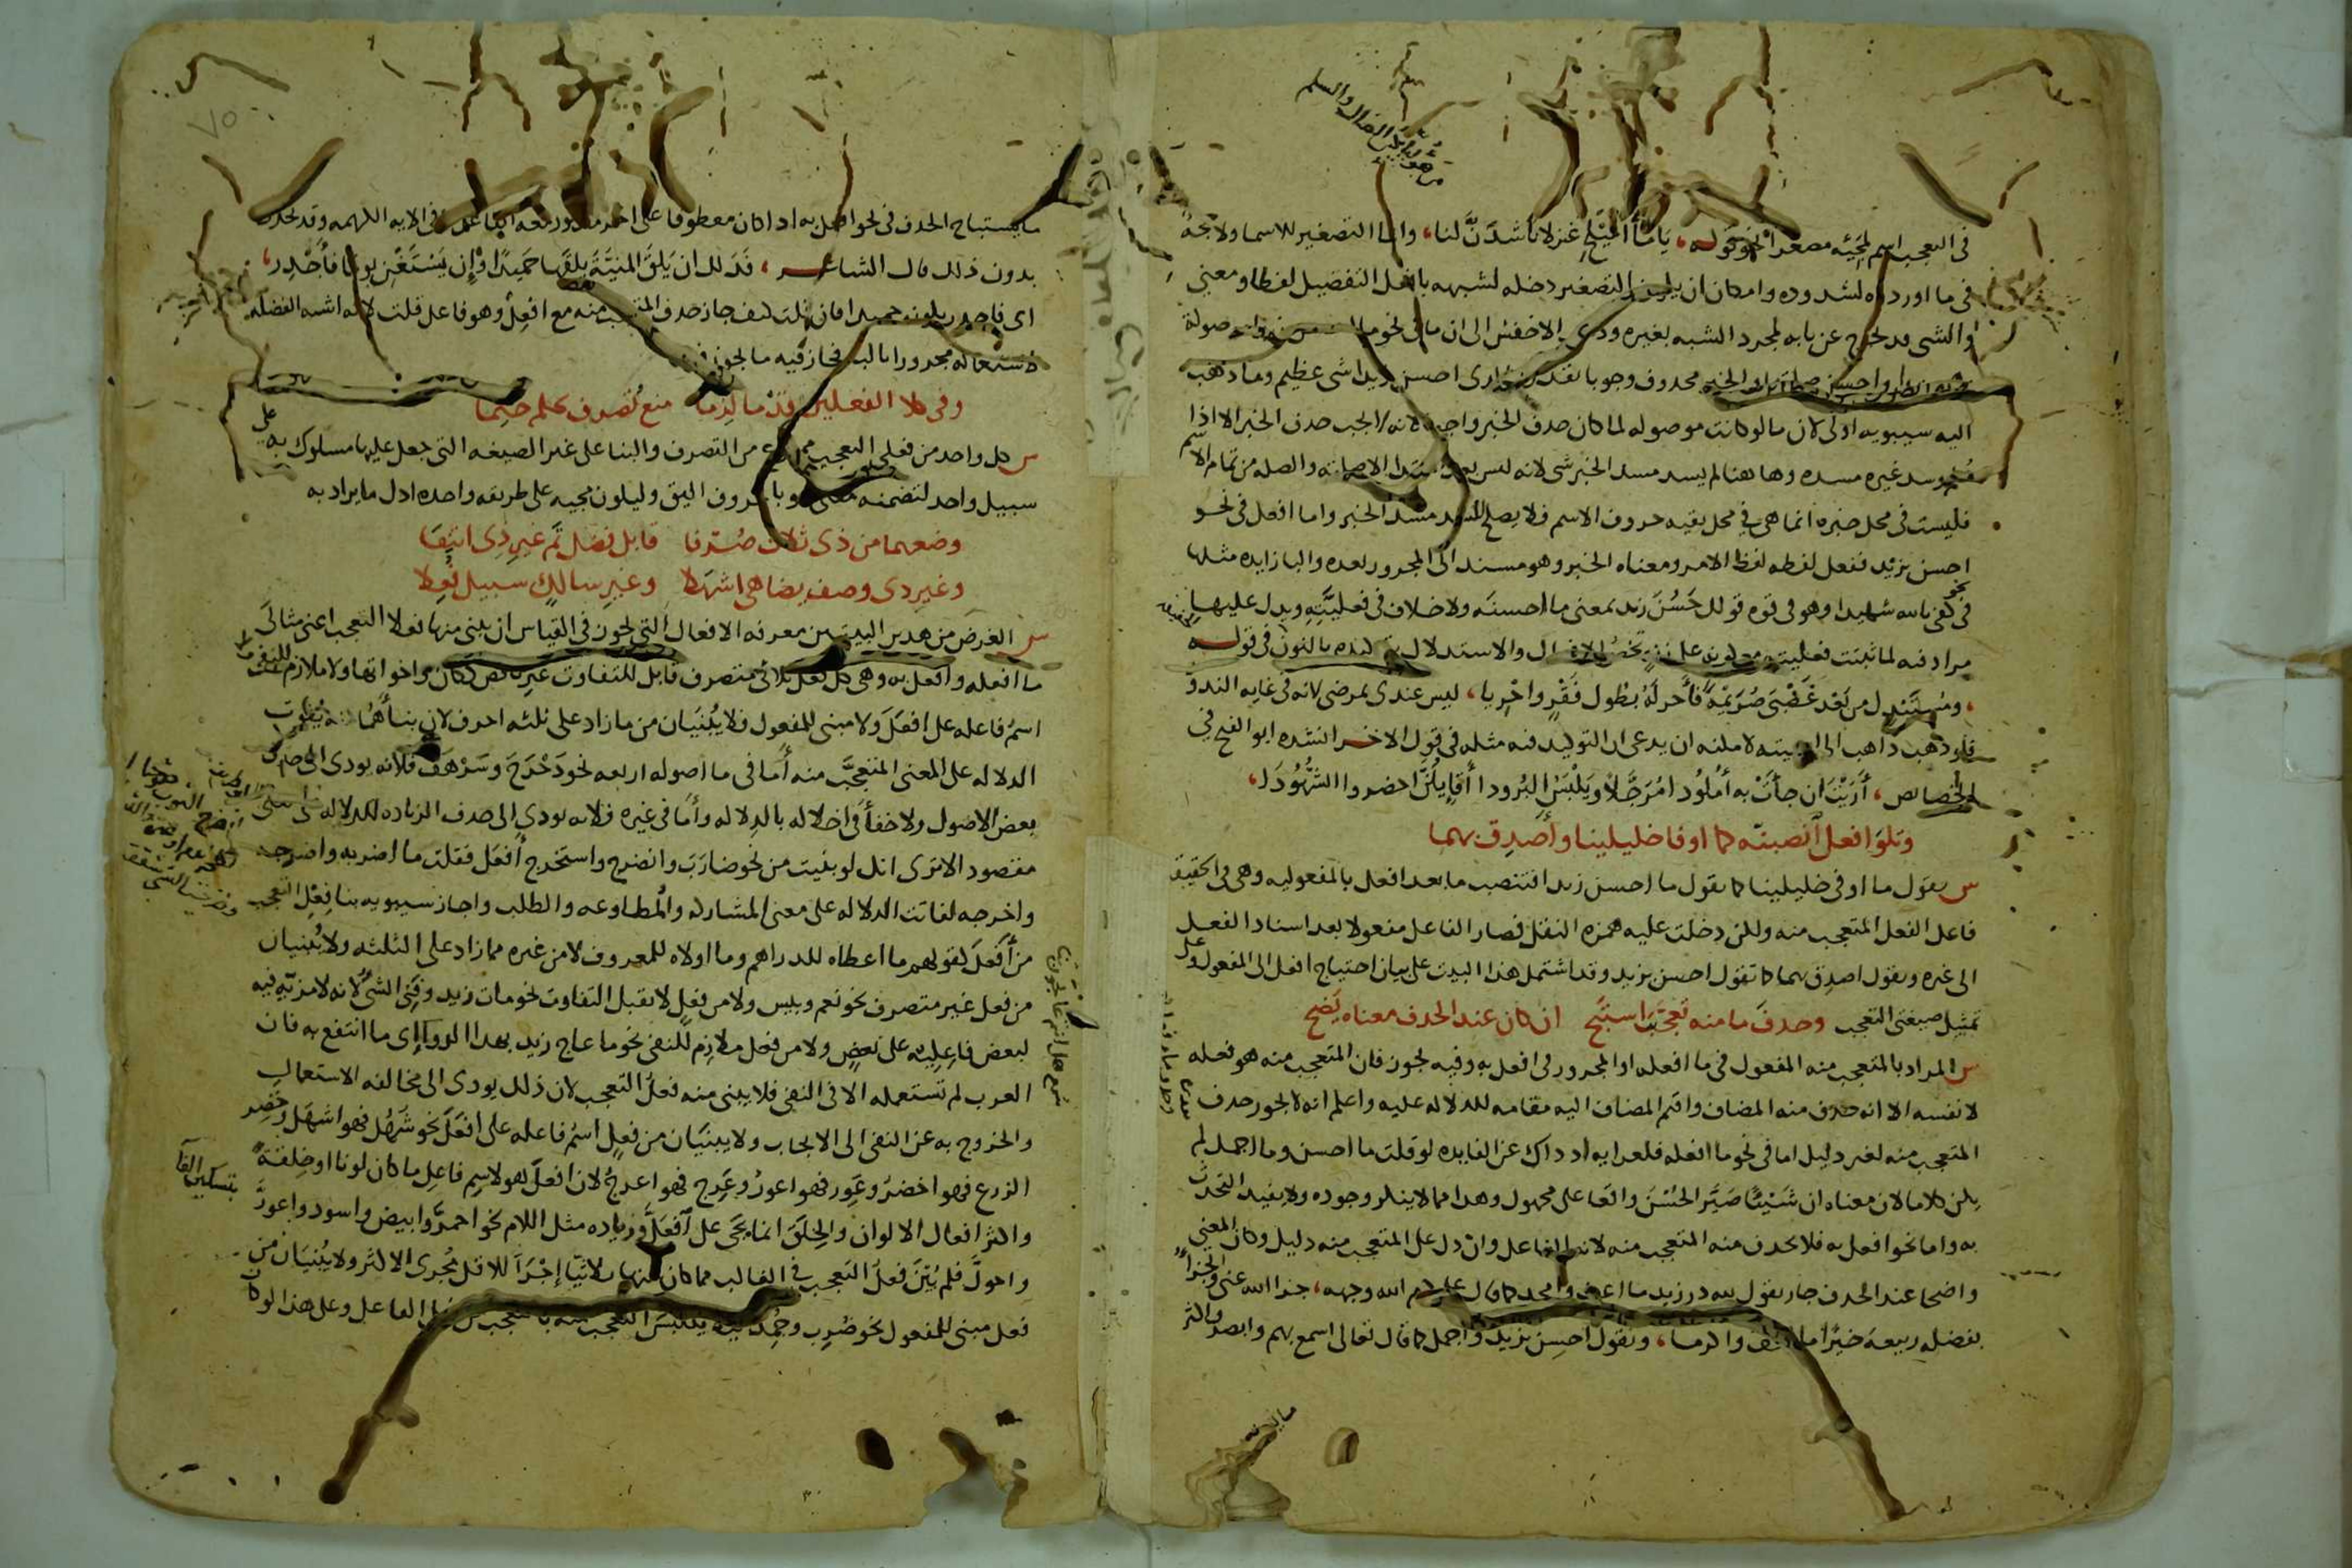 في التعجب اسم لمجيئه مصغرا نحو قوله، يا ما أميلح غزلانا شدن لنا، وانما التصغير للاسما ولا حجة
في ما اوردوه لشذوذه وامكان ان يكون التصغير دخله لشبهه بافعل التفضيل لفظا ومعنى
والشي قد يخرج عن بابه لمجرد الشبه بغيره وذهب الاخفش الى ان ما في نحو ما احسن زيدا موصولة
محذوف وجوبا تقديره الذى احسن زيدا شى عظيم وما ذهب
اليه سيبويه اولى لان ما لو كانت موصوله لما كان حذف الخبر واجبا لانه لا يجب حذف الخبر الا اذا
علم وسد غيره مسده وهاهنا لم يسد مسد الخبر شى لانه ليس بعد المبتدا الا صلته والصله من تمام الاسم
فليست في محل خبره انما هى في محل بقيه حروف الاسم فلا يصلح للسد مسد الخبر واما افعل في نحو
احسن بزيد ففعل لفظه لفظ الامر ومعناه الخبر وهو مسند الى المجرور بعده والبا زايده مثلها
في نحو كفى بالله شهيدا وهو في قوه قولك حسن زيد بمعنى ما احسنه ولا خلاف في فعليته ويدل عليها
مرادفه لما ثبتت فعليته والاستدلال بتوكيده بالنون في قوله
، ومستبدل من بعد غضبى صريمة فاحر به بطول فقر واحريا، ليس عندى بمرضى لانه في غايه الندو
فلو ذهب ذاهب الى اسميته لامكنه ان يدعى ان التوكيد فيه مثله في قول الاخر انشده ابو الفتح في
الخصايص، أريت ان جأت به أملودا مرجلا ويلبس البرودا أقايلن احضروا الشهودا،
وتلو افعل انصبنه كما اوفى خليلينا وأصدق بهما
س يقول ما اوفى خليلينا كما يقول ما احسن زيدا فتنصب ما بعد افعل بالمفعوليه وهى في الحقيقة
فاعل الفعل المتعجب منه ولكن دخلت عليه همزه النقل فصار الفاعل مفعولا بعد اسناد الفعل
الى غيره ويقول اصدق بهما كما تقول احسن بزيد وقد اشتمل هذا البيت على بيان احتياج افعل الى المفعول وعلى
تمثيل صيغتى التعجب وحذف ما منه تعجبت استبح ان كان عند الحذف معناه يضح
س المراد بالمتعجب منه المفعول في ما افعله او المجرور في افعل به وفيه تجوز فان المتعجب منه هو فعله
لا نفسه الا انه حذف منه المضاف واقيم المضاف اليه مقامه للدلاله عليه واعلم انه لا يجوز حذف
المتعجب منه لغير دليل اما في نحو ما افعله فلعرايه اذ ذاك عن الفايده لو قلت ما احسن وما اجمل لم
يكن كلاما لان معناه ان شيئا صير الحسن واقعا على مجهول وهذا مما لا ينكر وجوده ولا يفيد التحدث
به واما نحو افعل به فلا يحذف منه المتعجب منه لانه الفاعل وان دل على المتعجب منه دليل وكان المعنى
واضحا عند الحذف جاز يقول لله در زيد ما اعف وامجد كما قال على كرم الله وجهه، جزا الله عنى والجزا
بفضله ربيعة خيرا ما اعف واكرما، وتقول احسن بزيد واجمل كما قال تعالى اسمع بهم وابصر واكثر
ما يستباح الحذف في نحو افعل به اذا كان معطوفا على اخر مذكور معه في الايه الكريمه وقد يحذف
بدون ذلك قال الشاعر، فذلك ان يلق المنية يلقها حميدا وإن يستغن يوما فأجدر،
اى فاجدر بكونه حميدا فان قلت كيف جاز حذف المتعجب منه مع افعل وهو فاعل قلت لانه اشبه الفضله
لاستعماله مجرورا بالبا فجاز فيه ما يجوز فيها
وفي كلا الفعلين قدما لزما منع تصرف بحكم حتما
س كل واحد من فعلى التعجب ممنوع من التصرف والبنا على غير الصيغه التى جعل عليها مسلوك به
سبيل واحد لتضمنه معنى هو بالحروف اليق وليكون مجيه على طريقه واحده ادل ما يراد به
وصغهما من ذى ثلاث صرفا قابل فضل تم غير ذى انتفا
وغير ذى وصف يضاهى اشهلا وغير سالك سبيل فعلا
س الغرض من هذين البيتين معرفه الافعال التى يجوز في القياس ان يبنى منها فعلا التعجب اعنى مثالى
ما افعله وافعل به وهى كل فعل ثلاثى متصرف قابل للتفاوت غير ناقص ككان واخواتها ولا ملازم للنفى ولا
اسم فاعله على افعل ولا مبنى للمفعول فلا يبنيان من ما زاد على ثلثه احرف لان بنأهما منه يفوت
الدلاله على المعنى المتعجب منه أما في ما اصوله اربعه نحو دحرج وسرهف فلانه يودى الى حذف
بعض الاصول ولا خفأ في اخلاله بالدلاله وأما في غيره فلانه يودى الى حذف الزياده الداله على معنى
مقصود الا ترى انك لو بنيت من نحو ضارب وانضرج واستخرج أفعل فقلت ما اضربه واضرجه
واخرجه لفاتت الدلاله على معنى المشاركه والمطاوعه والطلب واجاز سيبويه بنا فعل التعجب
من أفعل كقولهم ما اعطاه للدراهم وما اولاه للمعروف لا من غيره مما زاد على الثلثه ولا يبنيان
من فعل غير متصرف نحو نعم وبيس ولا من فعل لا يقبل التفاوت نحو مات زيد وفنى الشى لانه لا مزيه فيه
لبعض فاعليه على بعض ولا من فعل ملازم للنفى نحو ما عاج زيد بهذا الدوا اى ما انتفع به فان
العرب لم تستعمله الا في النفى فلا يبنى منه فعل التعجب لان ذلك يودى الى مخالفه الاستعمال
والخروج به عن النفى الى الايجاب ولا يبنيان من فعل اسم فاعله على افعل نحو شهل فهو اشهل وخضر
الزرع فهو اخضر وعور فهو اعور وعرج فهو اعرج لان افعل هو لاسم فاعل ما كان لونا او خلقة
واكثر افعال الالوان والخلق انما يجى على أفعل بزياده مثل اللام نحو احمر وابيض واسود واعور
واحول فلم يبن فعل التعجب في الغالب مما كان منها ثلاثيا إجرأ للاقل مجرى الاكثر ولا يبنيان من
فعل مبنى للمفعول نحو ضرب وحمد ليلا يلتبس التعجب منه بالتعجب من فعل الفاعل وعلى هذا لو كان
بتسكين الفا